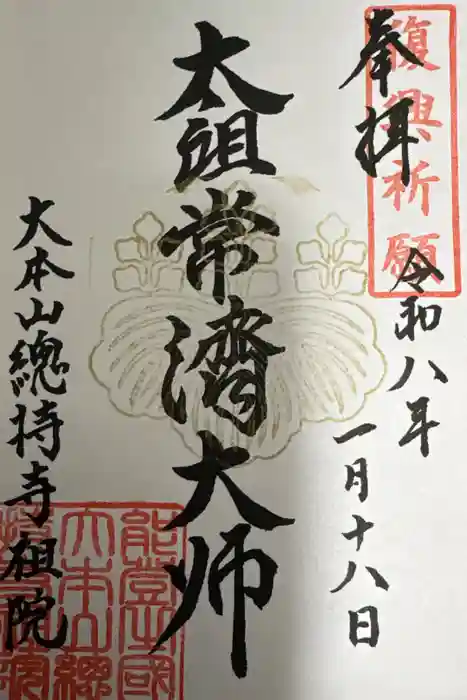 復興祈願
奉拝
令和八年
一月十八日
太祖常濟大师
大本山總持寺祖院
能登國
大本山總
持寺祖院